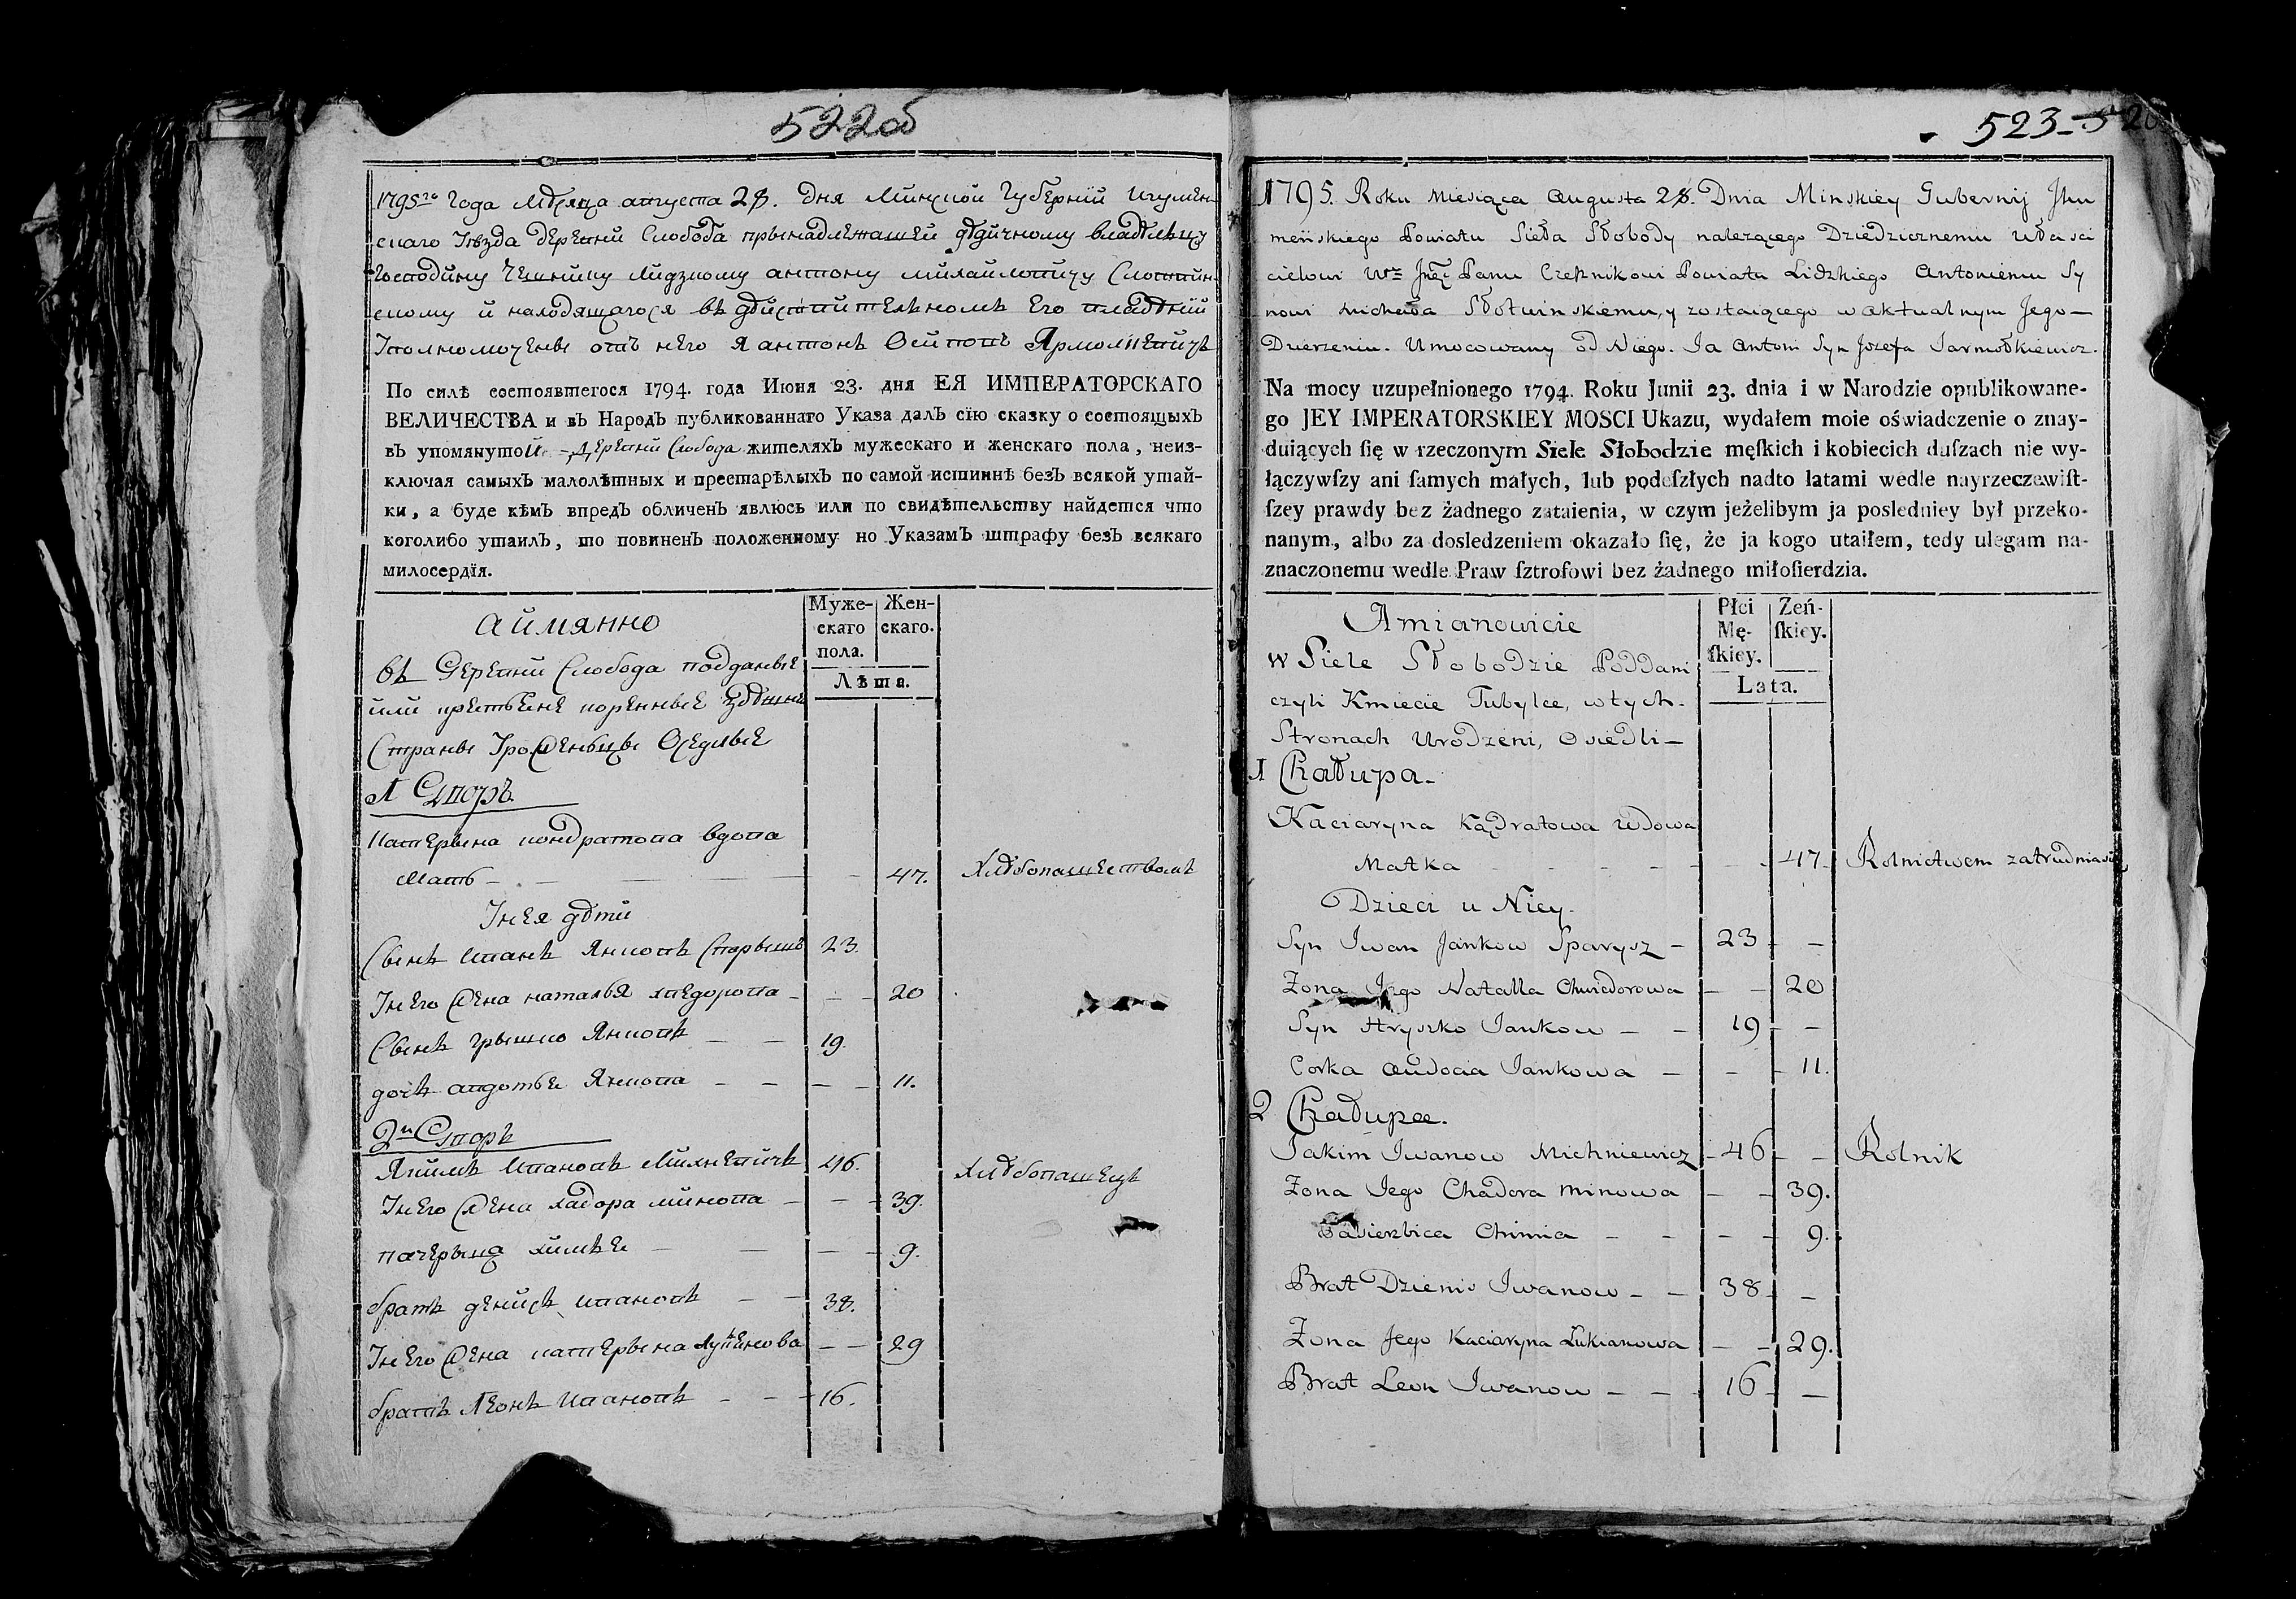 522об
1795го Года Мѣсяца августа 28. дня Минской Губерніи Игумен
скаго Уѣзда деревни Слобода прынадлежащей дѣдичному владѣльцу
Господину Чешнику Лидзкому антону михайловичу Слотвин
скому и находящагося въ дѣйствительномъ Его владѣніи
Уполномочены отъ него Я антонъ Осиповъ Ярмолкевичъ
По силѣ состоявшегося 1794. года Июня 23. дня ЕЯ ИМПЕРАТОРСКАГО
ВЕЛИЧЕСТВА и въ Народъ публикованнаго Указа далъ сїю сказку о состоящыхъ
въ упомянутой деревни Слобода жителяхъ мужескаго и женскаго пола, неиз-
ключая самыхъ малолѣтныхъ и престарѣлыхъ по самой истиннѣ безъ всякой утай-
ки, а буде кѣмъ впредъ обличенъ явлюсь или по свидѣтельству найдется что
коголибо утаилъ, то повиненъ положенному по Указамъ штрафу безъ всякаго
милосердїя.
аймянно
Муже-скаго пола.
Жен-скаго.
Лѣта.
въ Деревни Слобода подданые
или крестьяне коренные здѣшн
Страны Урожэньцы Оседлые
1 Двор.
Катерына кондратова вдова
Мать 47. Хлѣбопашествомъ
У нея дѣти
Сынъ Иванъ Янковъ Спарышъ 23.
У него жена наталья хведорова 20
Сынъ грышко Янковъ 19.
дочь авдотья Янкова 11.
2й Дворъ
Якимъ Ивановъ Михневичъ 46. Хлѣбопашецъ
У него жена хадора минова 39.
пачерыца химье 9.
братъ денисъ Ивановъ 38.
У него жена катерына лукьянова 29
братъ Леонъ Ивановъ 16.
523
1795. Roku Miesiąca Augusta 28. Dnia Minskiey Gubernij Jhu
meńskiego Powiatu Sieła Słobody nalezącego Dziedzicznemu Własci
cielowi Wz Jmć Panu Czesznikowi Powiatu Lidzkiego Antoniemu Sy
nowi Michała Słotwinskiemu, y zostaiącego w aktualnym Jego
Dzierzeniu. Umocowany od Niego. Ja Antoni Syn Jozefa Jarmołkiewicz.
Na mocy uzupełnionego 1794. Roku Junii 23. dnia i w Narodzie opublikowane-
go JEY IMPERATORSKIEY MOSCI Ukazu, wydałem moie oświadczenie o znay-
duiących ſię w rzeczonym Siele Słobodzie męſkich i kobiecich duſzach nie wy-
łączywſzy ani ſamych małych, lub podeſzłych nadto latami wedle nayrzeczewiſt-
ſzey prawdy bez żadnego zataienia, w czym jeżelibym ja posledniey był przeko-
nanym, albo za dosledzeniem okazało ſię, że ja kogo utaiłem, tedy ulegam na-
znaczonemu wedle Praw ſztrofowi bez żadnego miłoſierdzia.
Amianowicie
Płci Mę-ſkiey.
Zeń-ſkiey.
Lata.
w Siele Słobodzie Poddani
czyli Kmiecie Tubylce, w tych
Stronach Urodzeni, Osiedli
1 Chałupa
Kaciaryna Kądratowa Wdowa
Matka 47. Rolnictwem zatrudnia się
Dzieci u Niey.
Syn Iwan Jankow Sparysz 23
Zona Jego Natalla Chwiedorowa 20
Syn Hryszko Jankow 19
Corka Audocia Jankowa 11.
2 Chałupa.
Jakim Iwanow Michniewicz 46 Rolnik
Zona Jego Chadora Minowa 39.
Pasierbica Chimia 9.
Brat Dzienis Iwanow 38
Zona Jego Kaciaryna Łukianowa 29.
Brat Leon Iwanow 16